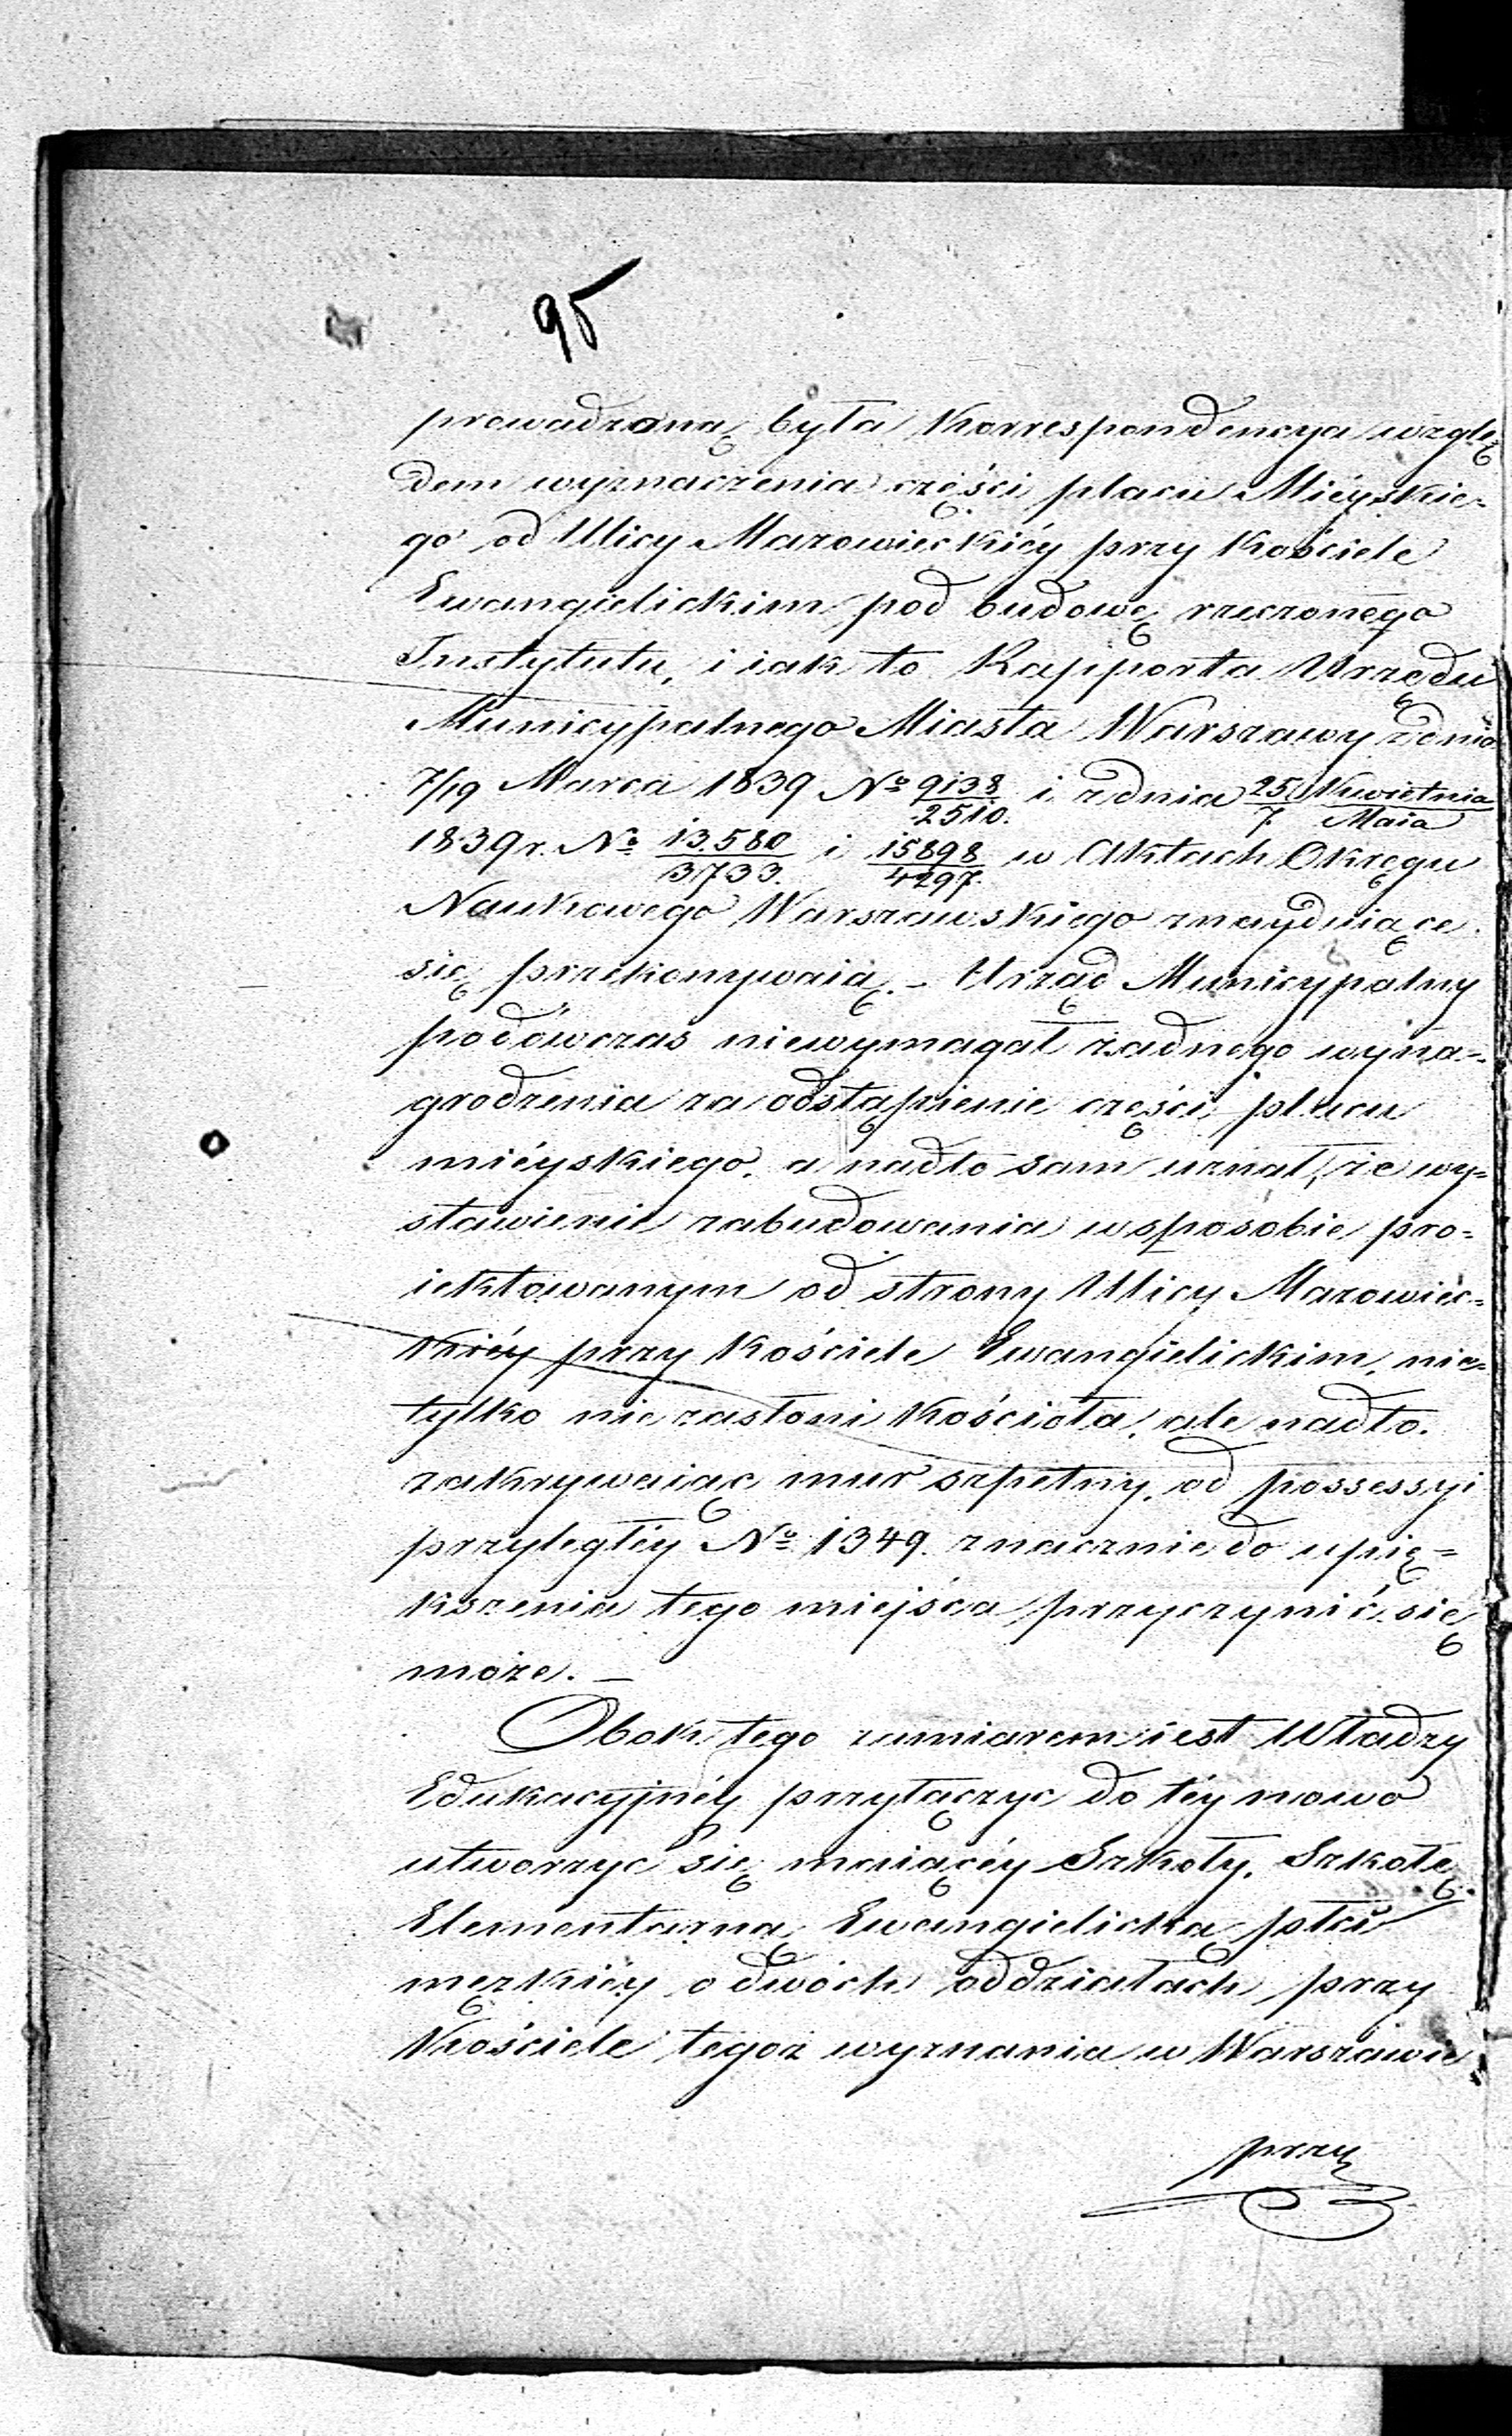 95
prowadzoną była Korrespondencya wzglę
dem wyznaczenia części placu Mieyskie-
go od Ulicy Mazowieckiéy przy Kościele
Ewangielickim pod budowę rzeczonego
Instytutu, i iak to Rapporta Urzędu
Municypalnego Miasta Warszawy z dnia
7/19 Marca 1839 No 9138/2510. i z dnia 25 Kwietnia/7 Maia
1839 r. No 13.580/3733. i 15898/4297. w Aktach Okręgu
Naukowego Warszawskiego znayduiące
się przekonywaią. – Urząd Municypalny
podówczas niewymagał żadnego wyna=
grodzenia za odstąpienie części placu
miéyskiego, a nadto sam uznał, że wy=
stawienie zabudowania w sposobie pro=
iektowanym od strony Ulicy Mazowiéc=
kiéy przy Kościele Ewangielickim, nie=
tylko nie zasłoni Kościoła, ale nadto.
zakrywaiąc mur szpetny, od possessyi
przyległéy No 1349. znacznie do upię=
kszenia tego miejsca przyczynić się
może. –
Obok tego zamiarem iest Władzy
Edukacyjnéy przyłączyć do téy nowo
utworzyć się maiącéy Szkoły, Szkołę
Elementarną Ewangielicką płci
męzkiéy o dwóch oddziałach przy
Kościele tegoż wyznania w Warszawie
przy